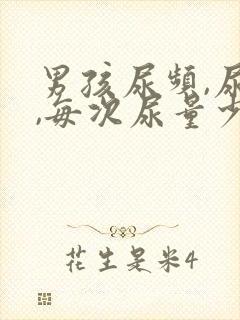 男孩尿频,尿
,每次尿量少
花生是米4